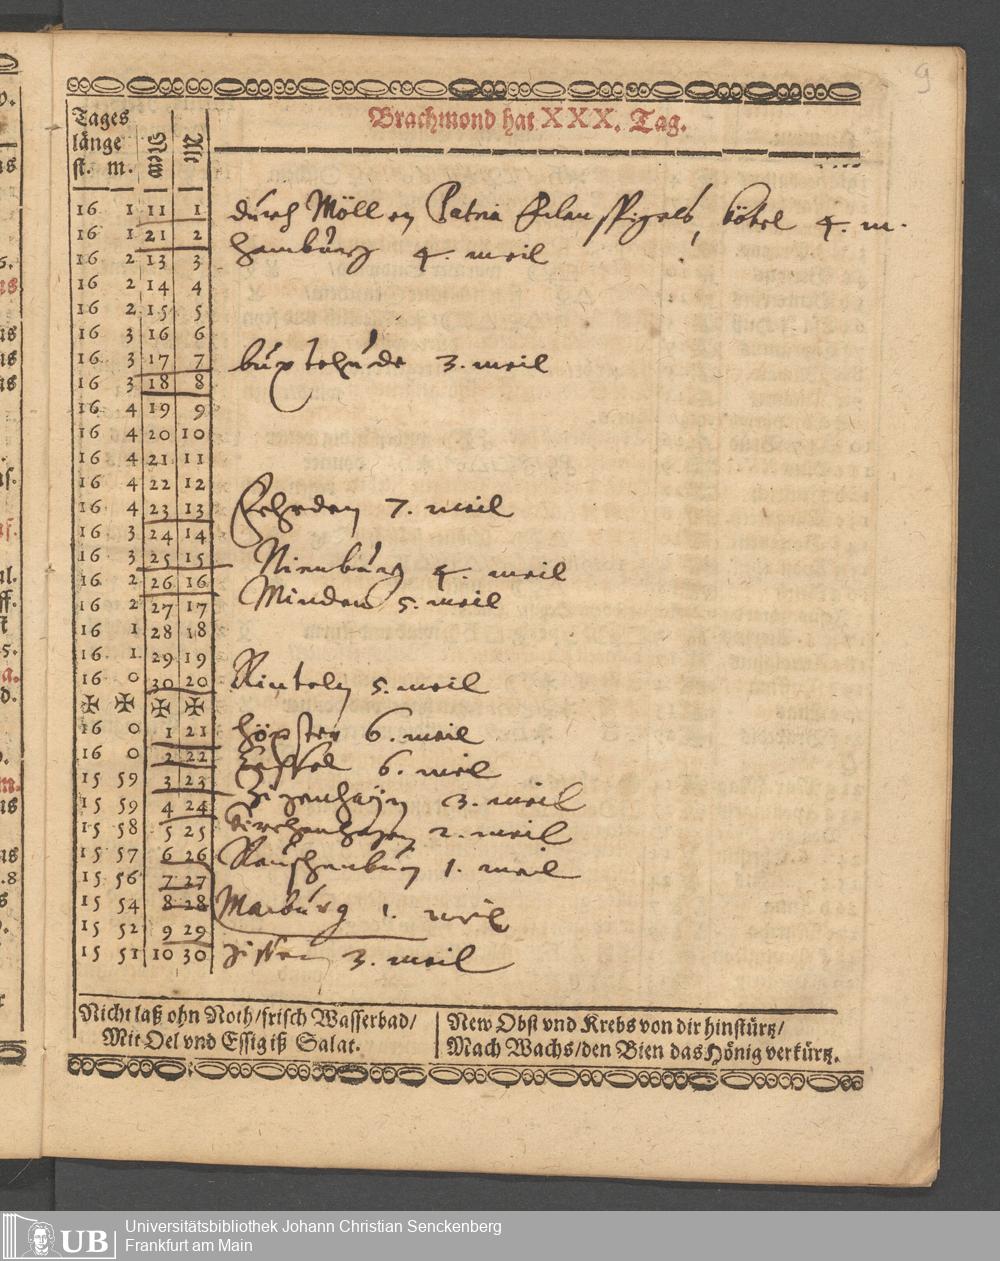 9
Brachmond hat XXX. Tag.
Tages länge
st. m. New Alt
16 1 11 1 durch Möllen Patria Eulenspigels,
4. m.
16 1 21 2 hamburg 4. meil
16 2 13 3
16 2 14 4
16 2 15 5
16 3 16 6
16 3 17 7 buxtehude 3. meil
16 3 18 8
16 4 19 9
16 4 20 10
16 4 21 11
16 4 22 12
16 4 23 13 Fehrden 7. meil
16 3 24 14
16 3 25 15 Nienburg 4. meil
16 2 26 16 Minden 5. meil
16 2 27 17
16 1 28 18
16 1 29 19
16 0 30 20 Rinteln 5. meil
✠ ✠ ✠ ✠
16 0 1 21 höxster 6. meil
16 0 2 22 Cassel 6. meil
15 59 3 23 Zigenhayn 3. meil
15 59 4 24
15 58 5 25 2. meil
15 57 6 26 Rauschenburg 1. meil
15 56 7 27
15 54 8 28 Marburg 1. meil
15 52 9 29
15 51 10 30 Gissen 3. meil
Nicht laß ohn Noth/frisch Wasserbad/
Mit Oel vnd Essig iß Salat.
New Obst vnd Krebs von dir hinstürtz/
Mach Wachs/den Bien das Hönig verkürtz.
UB
Universitätsbibliothek Johann Christian Senckenberg
Frankfurt am Main